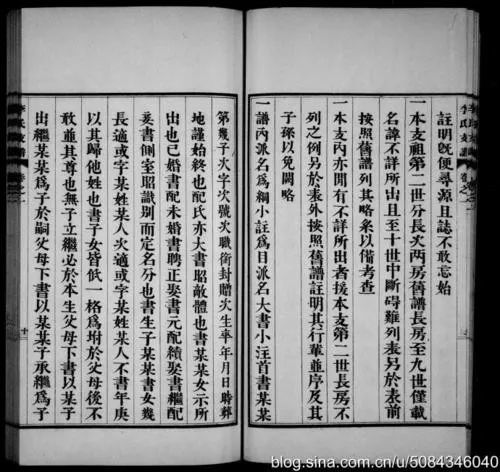 註明既便尋源且誌不敢忘始
一本支祖第二世分長次兩房舊譜長房至九世僅載
名諱不詳所出且至十世中斷碍難列表另於表前
按照舊譜列其略系以備考查
一本支內亦間有不詳所出者援本支第二世長房不
列之例另於表外按照舊譜註明其行輩並序及其
子孫以免闕略
一譜內派名爲綱小註爲目派名大書小注首書某某
第幾子次字次號次職銜封贈次生卒年月日時葬
地謹始終也配氏亦大書昭敵體也書某某女示所
出也已婚書配未婚書聘正娶書元配續娶書繼配
妾書側室昭識別而定名分也書生子某某書女幾
長適或字某姓某人次適或字某姓某人不書年庚
以其歸他姓也書子女皆低一格爲坿於父母後不
敢並其尊也無子立繼必於本生父母下書以某子
出繼某某爲子於嗣父母下書以某某子承繼爲子
李氏支譜 卷之一
十一
blog.sina.com.cn/u/5084346040